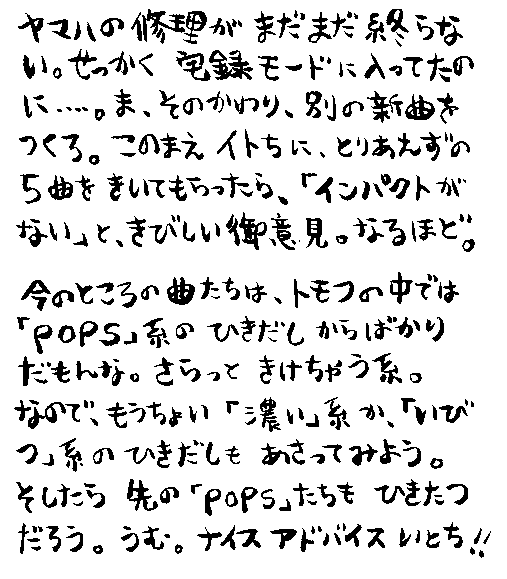 ヤマハの修理がまだまだ終らな
い。せっかく宅録モードに入ってたの
に……。ま、そのかわり、別の新曲を
つくろ。このまえイトちに、とりあえずの
5曲をきいてもらったら、「インパクトが
ない」と、きびしい御意見。なるほど。
今のところの曲たちは、トモフの中では
「POPS」系のひきだしからばかり
だもんな。さらっときけちゃう系。
なので、もうちょい「濃い」系か、「いび
つ」系のひきだしもあさってみよう。
そしたら先の「POPS」たちもひきたつ
だろう。うむ。ナイスアドバイスいとち!!